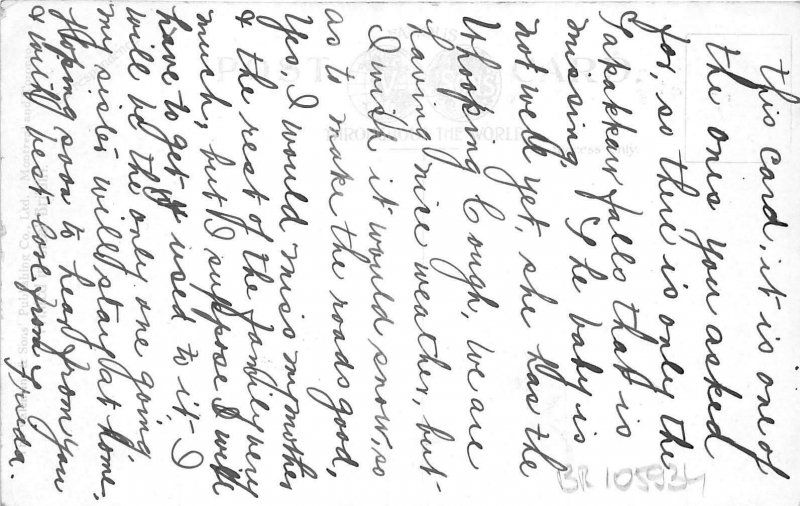 this card, it is one of
the ones you asked
for, so there is only the
Takakkaw falls that is
missing, The baby is
not well yet, she has the
Whooping Cough, we are
having nice weather, but
I wish it would snow, so
as to make the roads good,
Yes I would miss my mother
& the rest of the family very
much, but I suppose I will
have to get used to it, I
will be the only one going,
my sister will stay at home,
Hoping soon to hear from you
& with best love from Freda.
POST CARD
THROUGHOUT THE WORLD
BR 105934